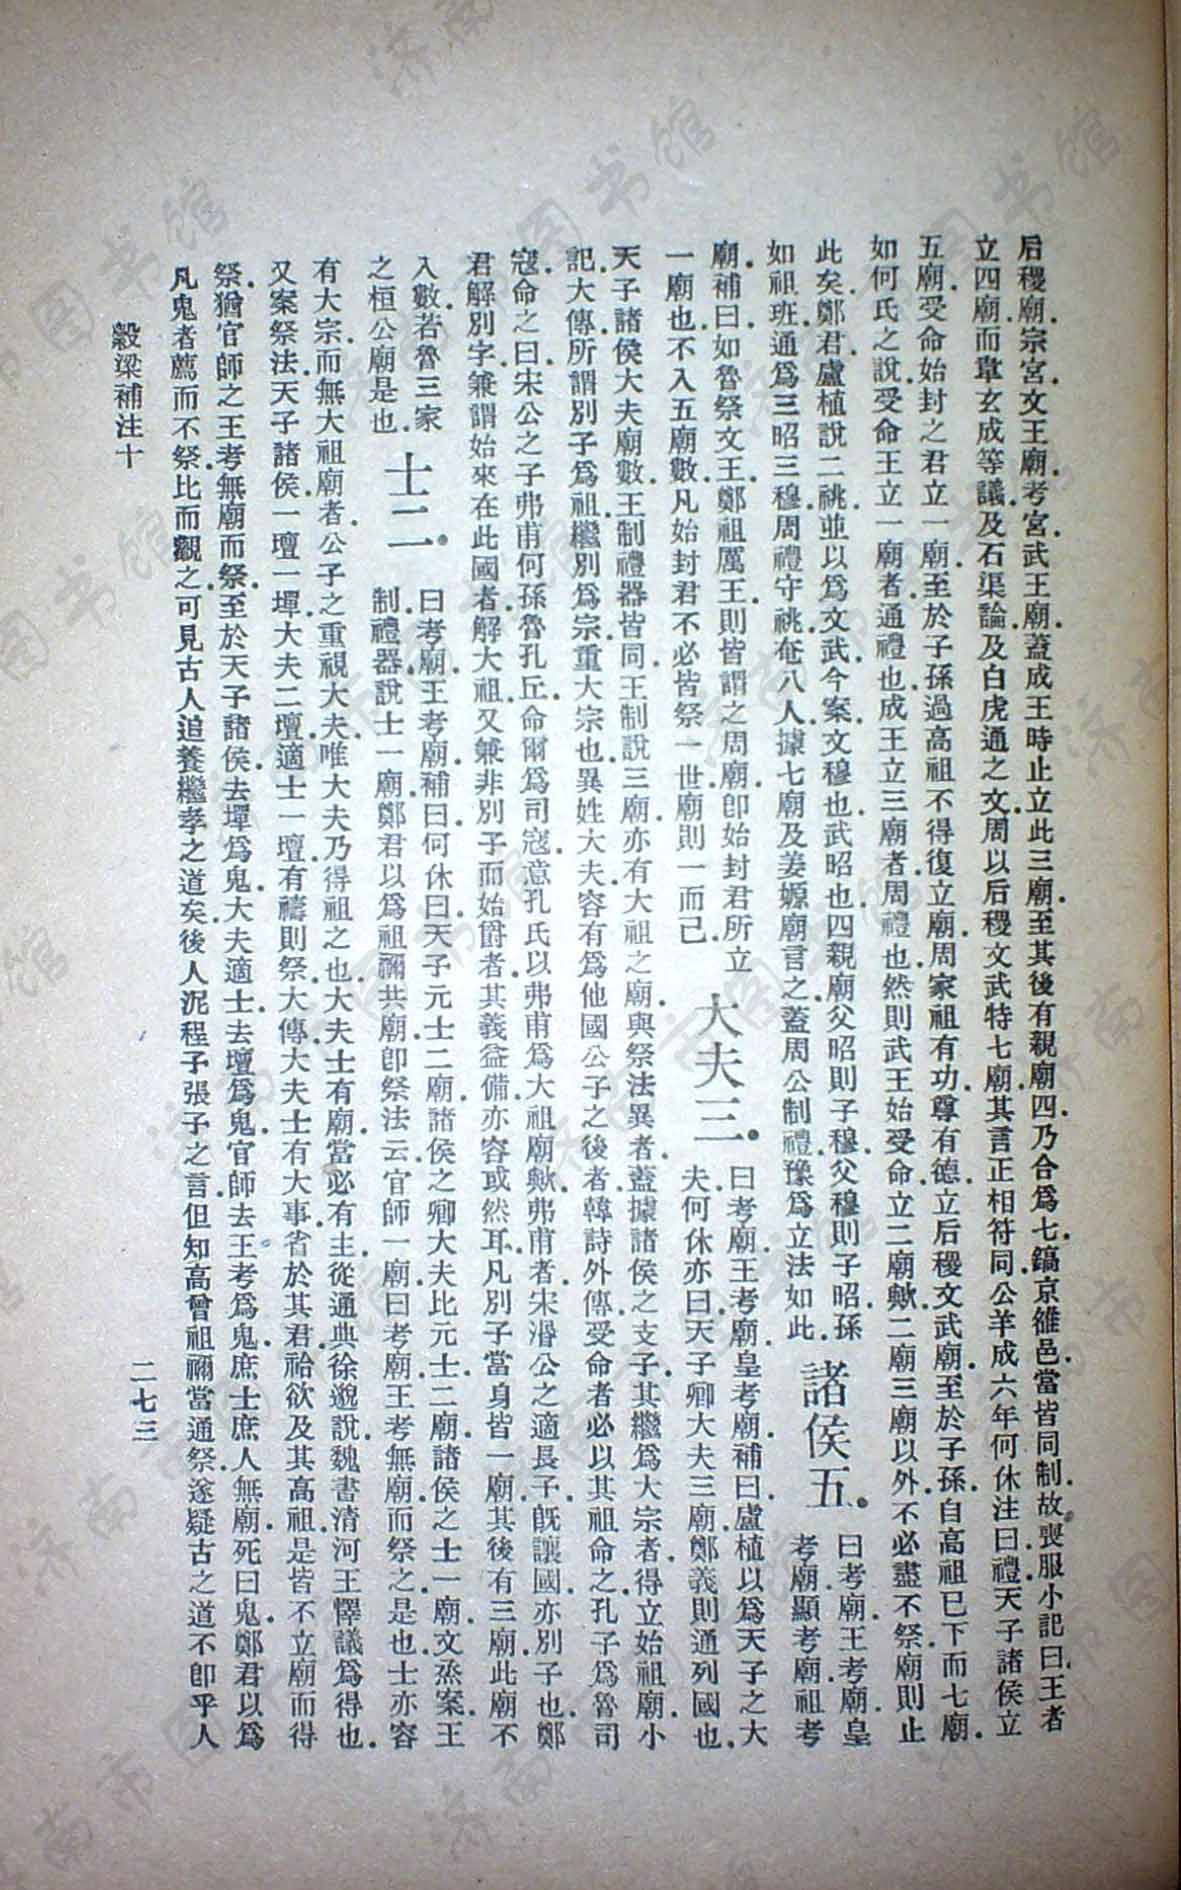 后稷廟宗宮文王廟考宮武王廟蓋成王時止立此三廟至其後有親廟四乃合爲七鎬京雒邑當皆同制故喪服小記曰王者
立四廟而韋玄成等議及石渠論及白虎通之文周以后稷文武特七廟其言正相符同公羊成六年何休注曰禮天子諸侯立
五廟受命始封之君立一廟至於子孫過高祖不得復立廟周家祖有功尊有德立后稷文武廟至於子孫自高祖已下而七廟
如何氏之說受命王立一廟者通禮也成王立三廟者周禮也然則武王始受命立二廟歟二廟三廟以外不必盡不祭廟則止
此矣鄭君盧植說二祧並以爲文武今案文穆也武昭也四親廟父昭則子穆父穆則子昭孫
如祖班通爲三昭三穆周禮守祧奄八人據七廟及姜嫄廟言之蓋周公制禮豫爲立法如此
諸侯五
曰考廟王考廟皇
考廟顯考廟祖考
廟補曰如魯祭文王鄭祖厲王則皆謂之周廟卽始封君所立
一廟也不入五廟數凡始封君不必皆祭一世廟則一而已
大夫三
曰考廟王考廟皇考廟補曰盧植以爲天子之大
夫何休亦曰天子卿大夫三廟鄭義則通列國也
天子諸侯大夫廟數王制禮器皆同王制說三廟亦有大祖之廟與祭法異者蓋據諸侯之支子其繼爲大宗者得立始祖廟小
記大傳所謂別子爲祖繼別爲宗重大宗也異姓大夫容有爲他國公子之後者韓詩外傳受命者必以其祖命之孔子爲魯司
寇命之曰宋公之子弗甫何孫魯孔丘命爾爲司寇意孔氏以弗甫爲大祖廟歟弗甫者宋湣公之適長子旣讓國亦別子也鄭
君解別字兼謂始來在此國者解大祖又兼非別子而始爵者其義益備亦容或然耳凡別子當身皆一廟其後有三廟此廟不
入數若魯三家
之桓公廟是也
士二
曰考廟王考廟補曰何休曰天子元士二廟諸侯之卿大夫比元士二廟諸侯之士一廟文烝案王
制禮器說士一廟鄭君以爲祖禰共廟卽祭法云官師一廟曰考廟王考無廟而祭之是也士亦容
有大宗而無大祖廟者公子之重視大夫唯大夫乃得祖之也大夫士有廟當必有主從通典徐邈說魏書清河王懌議爲得也
又案祭法天子諸侯一壇一墠大夫二壇適士一壇有禱則祭大傳大夫士有大事省於其君祫欲及其高祖是皆不立廟而得
祭猶官師之王考無廟而祭至於天子諸侯去墠爲鬼大夫適士去壇爲鬼官師去王考爲鬼庶士庶人無廟死曰鬼鄭君以爲
凡鬼者薦而不祭比而觀之可見古人追養繼孝之道矣後人泥程子張子之言但知高曾祖禰當通祭遂疑古之道不卽乎人
穀梁補注十
二七三